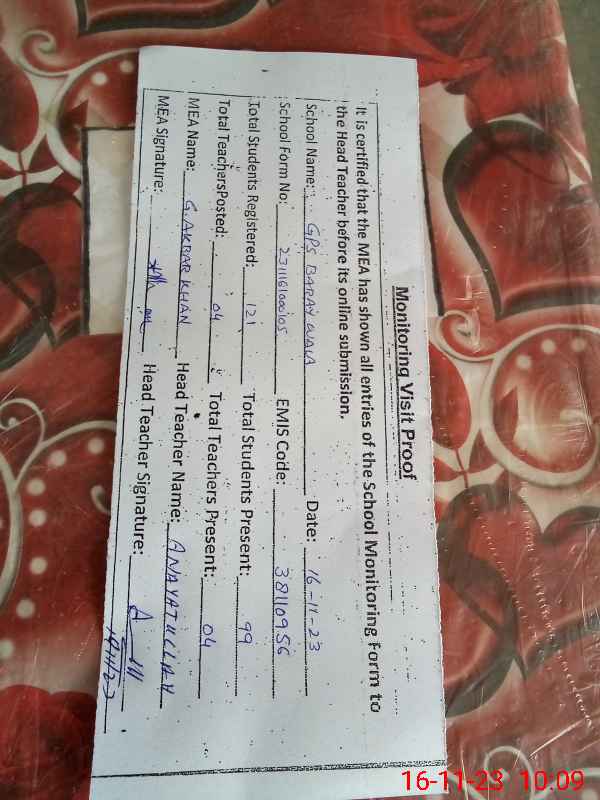 Monitoring Visit Proof
It is certified that the MEA has shown all entries of the School Monitoring Form to
the Head Teacher before its online submission.
School Name: GPS BARAY WALA Date: 16-11-23
School Form No: 231116100005 EMIS Code: 38110956
Total Students Registered: 121 Total Students Present: 99
Total TeachersPosted: 04 Total Teachers Present: 04
MEA Name: G.AKBAR KHAN Head Teacher Name: ANAYATULLAH
MEA Signature: Head Teacher Signature:
16-11-23 10:09